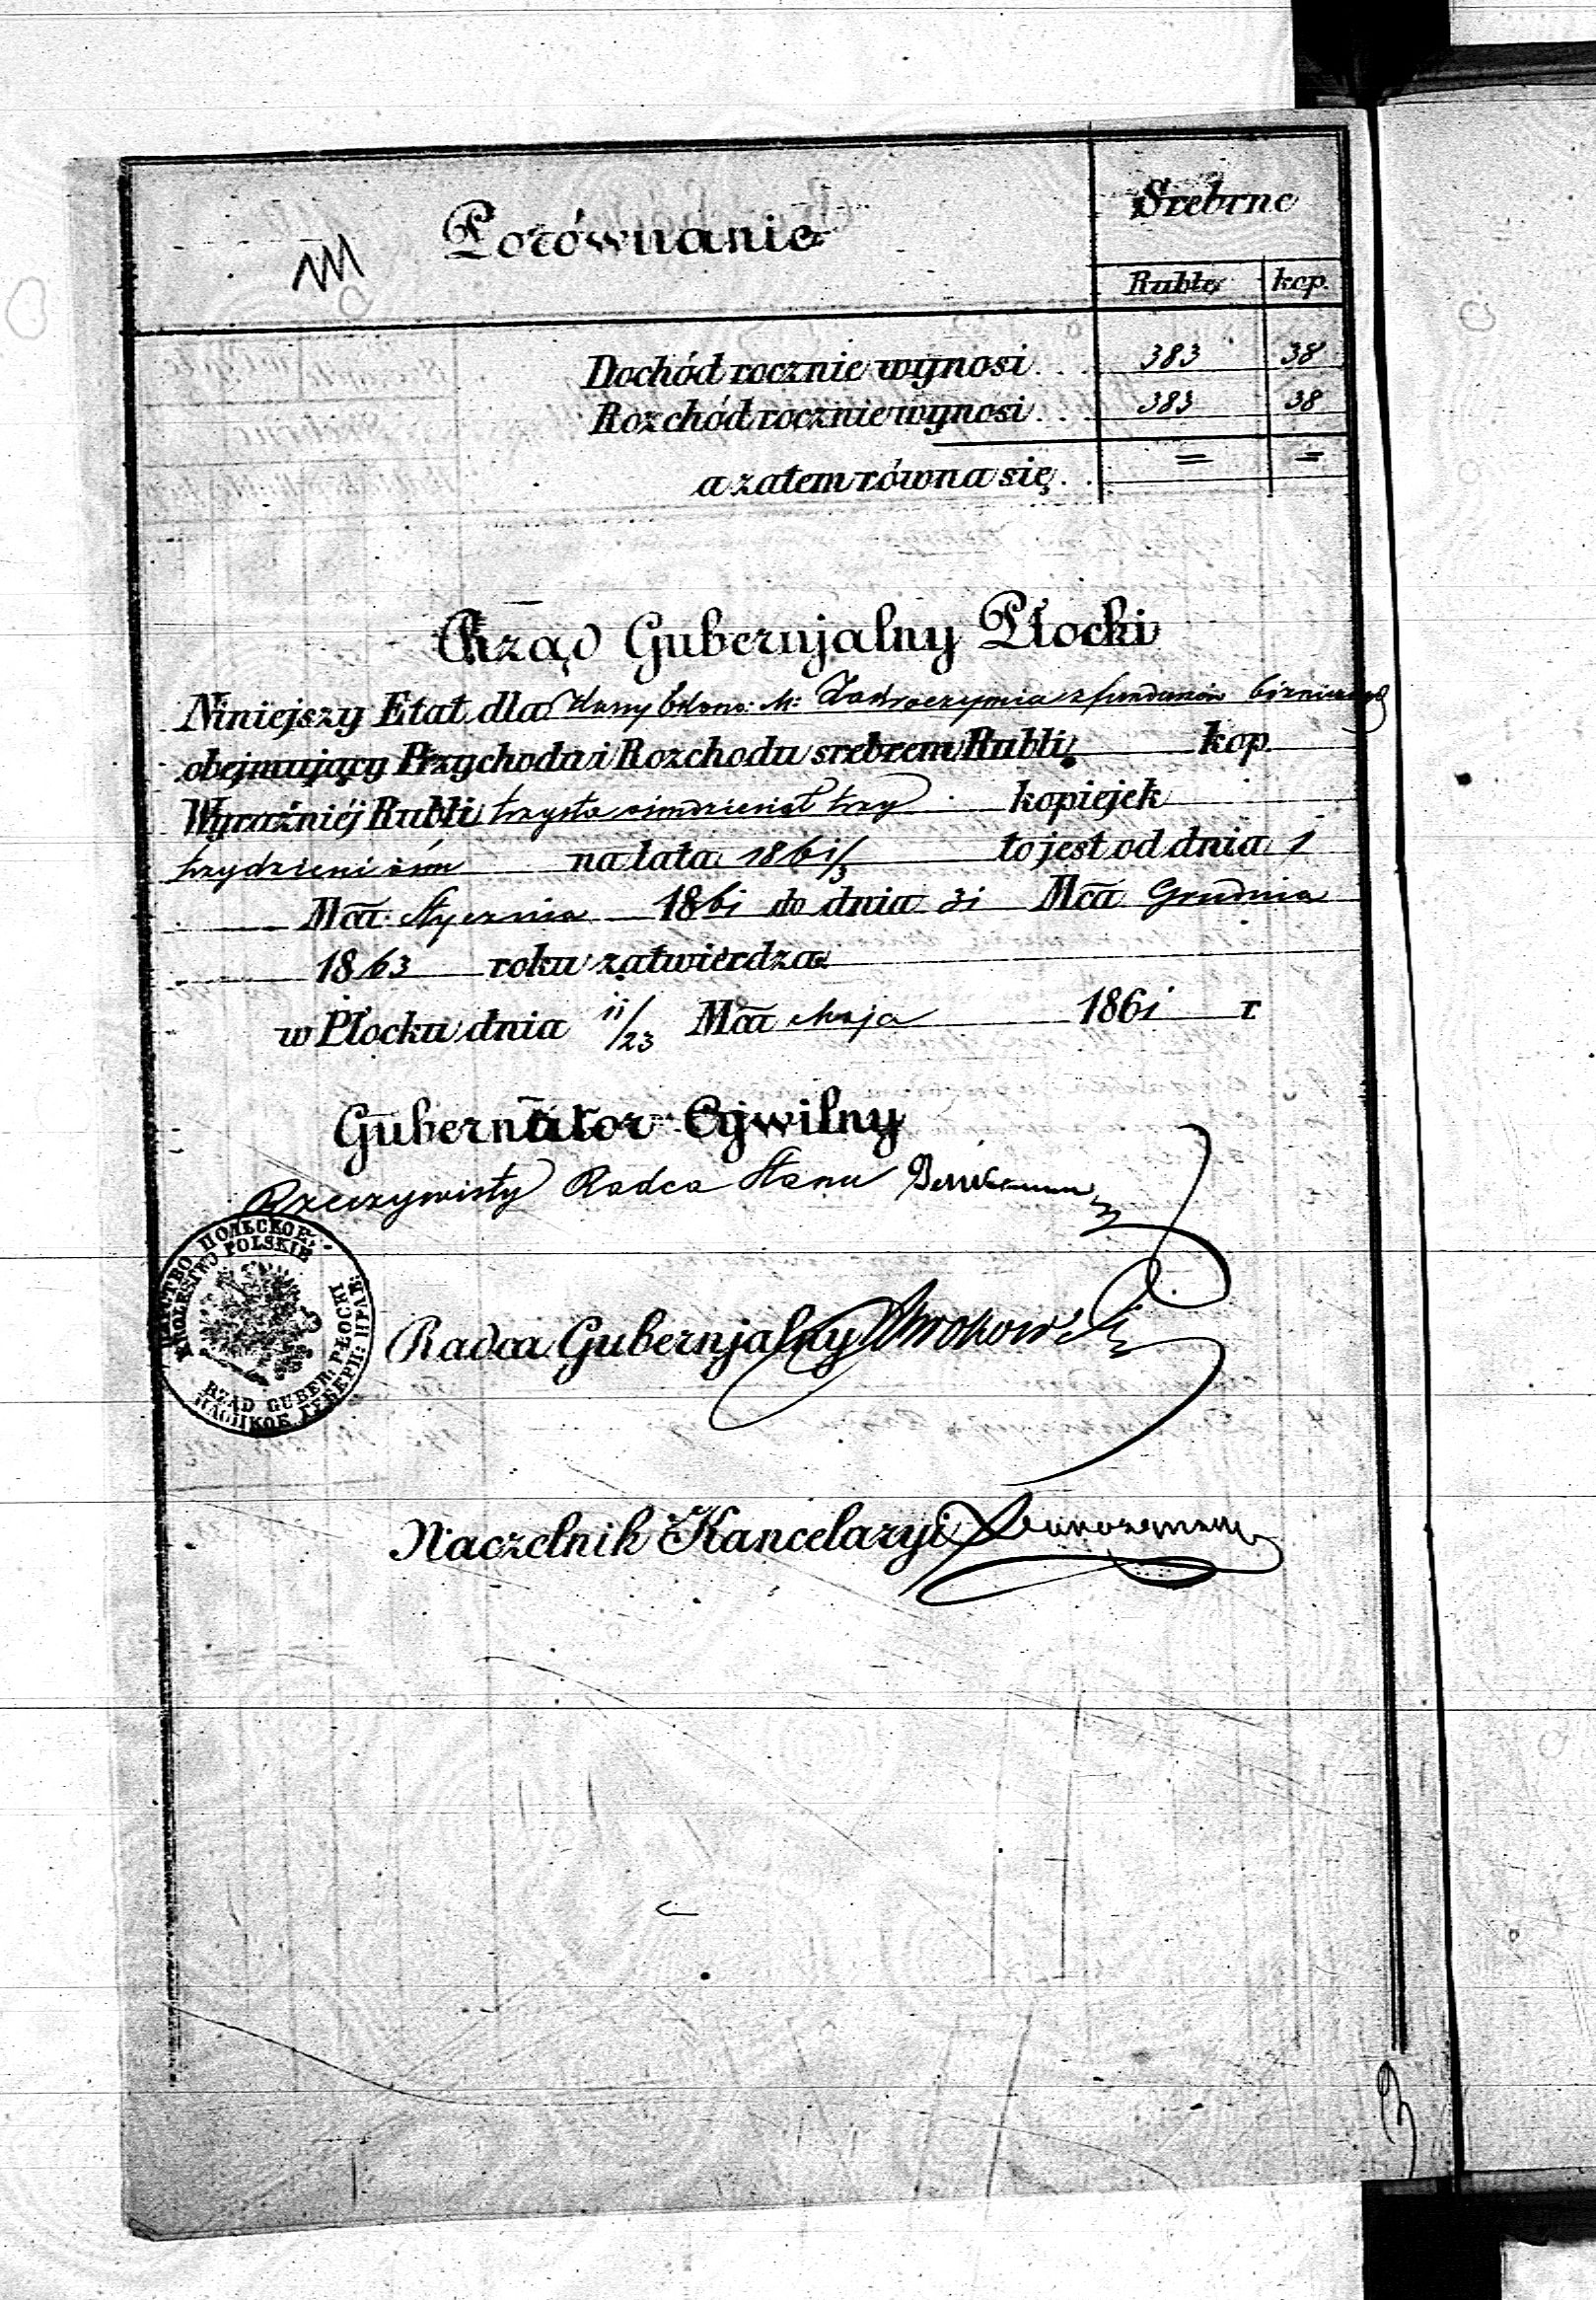 Porównanie
Srebrne
Ruble kop.
Dochód rocznie wynosi . . 383 38
Rozchód rocznie wynosi . . 383 38
a zatem równa się . . = =
Rząd Gubernjalny Płocki
Niniejszy Etat dla Kassy Ekono: M: Zakroczymia z funduszów bóżniczych
obejmujący Przychodu i Rozchodu srebrem Rubli kop
Wyraźniéj Rubli trzysta ośmdziesiąt trzy kopiejek
trzydzieści ośm na lata 1861/3 to jest od dnia 1
Mca Stycznia 1861 do dnia 31 Mca Grudnia
1863 roku zatwierdza
w Płocku dnia 11/23 Mca Maja 1861 r
Gubernator Cywilny
Rzeczywisty Radca Stanu
KRÓLESTWO POLSKIE
RZĄD GUBER: PŁOCKI
Radca Gubernjalny
Naczelnik Kancelaryi